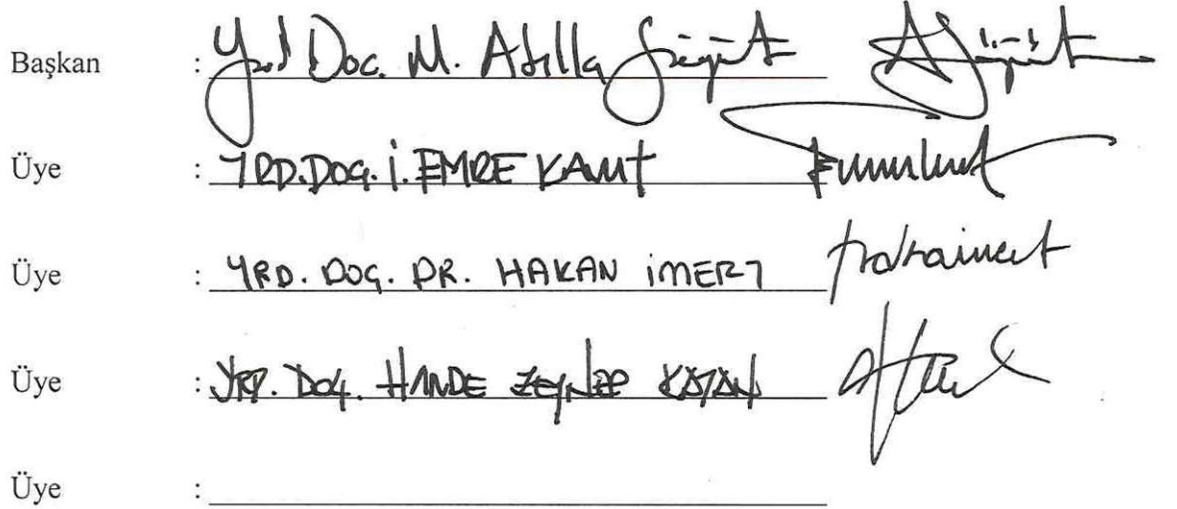 Başkan : Yrd Doc. M. Atilla Söğüt
Üye : YRD.DOÇ. İ. EMRE KAMIT
Üye : YRD. DOÇ. DR. HAKAN İMERT
Üye : YRD. DOÇ. HANDE ZEYNEP
Üye :